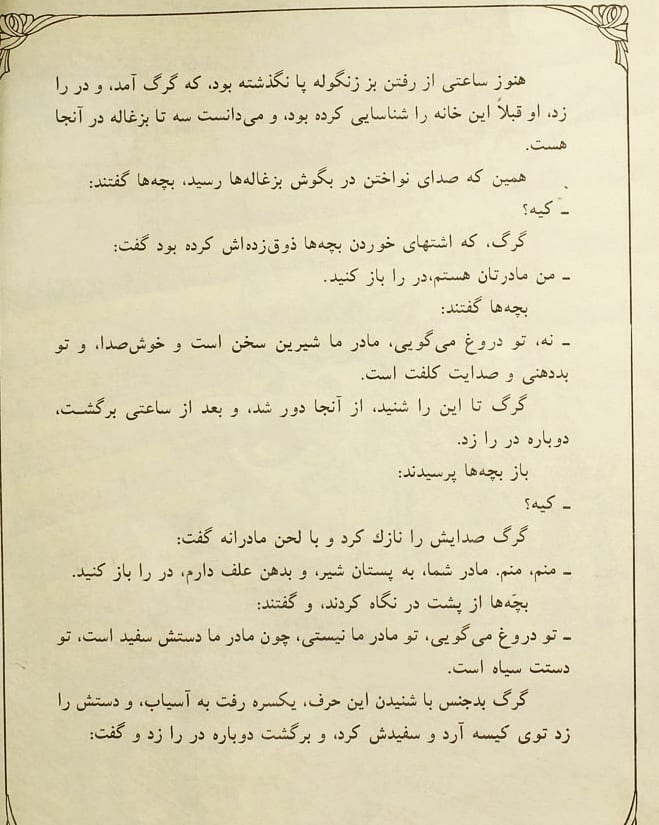 هنوز ساعتی از رفتن بز زنگوله پا نگذشته بود، که گرگ آمد، و در را
زد، او قبلاً این خانه را شناسایی کرده بود، و می‌دانست سه تا بزغاله در آنجا
هست.
همین که صدای نواختن در بگوش بزغاله‌ها رسید، بچه‌ها گفتند:
ـ کیه؟
گرگ، که اشتهای خوردن بچه‌ها ذوق‌زده‌اش کرده بود گفت:
ـ من مادرتان هستم،در را باز کنید.
بچه‌ها گفتند:
ـ نه، تو دروغ می‌گویی، مادر ما شیرین سخن است و خوش‌صدا، و تو
بددهنی و صدایت کلفت است.
گرگ تا این را شنید، از آنجا دور شد، و بعد از ساعتی برگشت،
دوباره در را زد.
باز بچه‌ها پرسیدند:
ـ کیه؟
گرگ صدایش را نازك کرد و با لحن مادرانه گفت:
ـ منم، منم. مادر شما، به پستان شیر، و بدهن علف دارم، در را باز کنید.
بچّه‌ها از پشت در نگاه کردند، و گفتند:
ـ تو دروغ می‌گویی، تو مادر ما نیستی، چون مادر ما دستش سفید است، تو
دستت سیاه است.
گرگ بدجنس با شنیدن این حرف، یکسره رفت به آسیاب، و دستش را
زد توی کیسه آرد و سفیدش کرد، و برگشت دوباره در را زد و گفت: